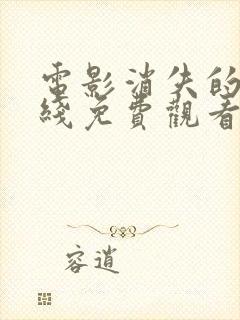 電影消失的
綫免費觀看
容逍